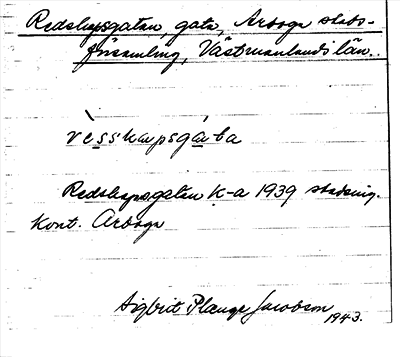 Redskapsgatan, gata, Arboga stads-
församling, Västmanlands län.
Redskapsgatan K-a 1939 stadsing.
kont. Arboga
Sigbrit Plænge Jacobson
1943.